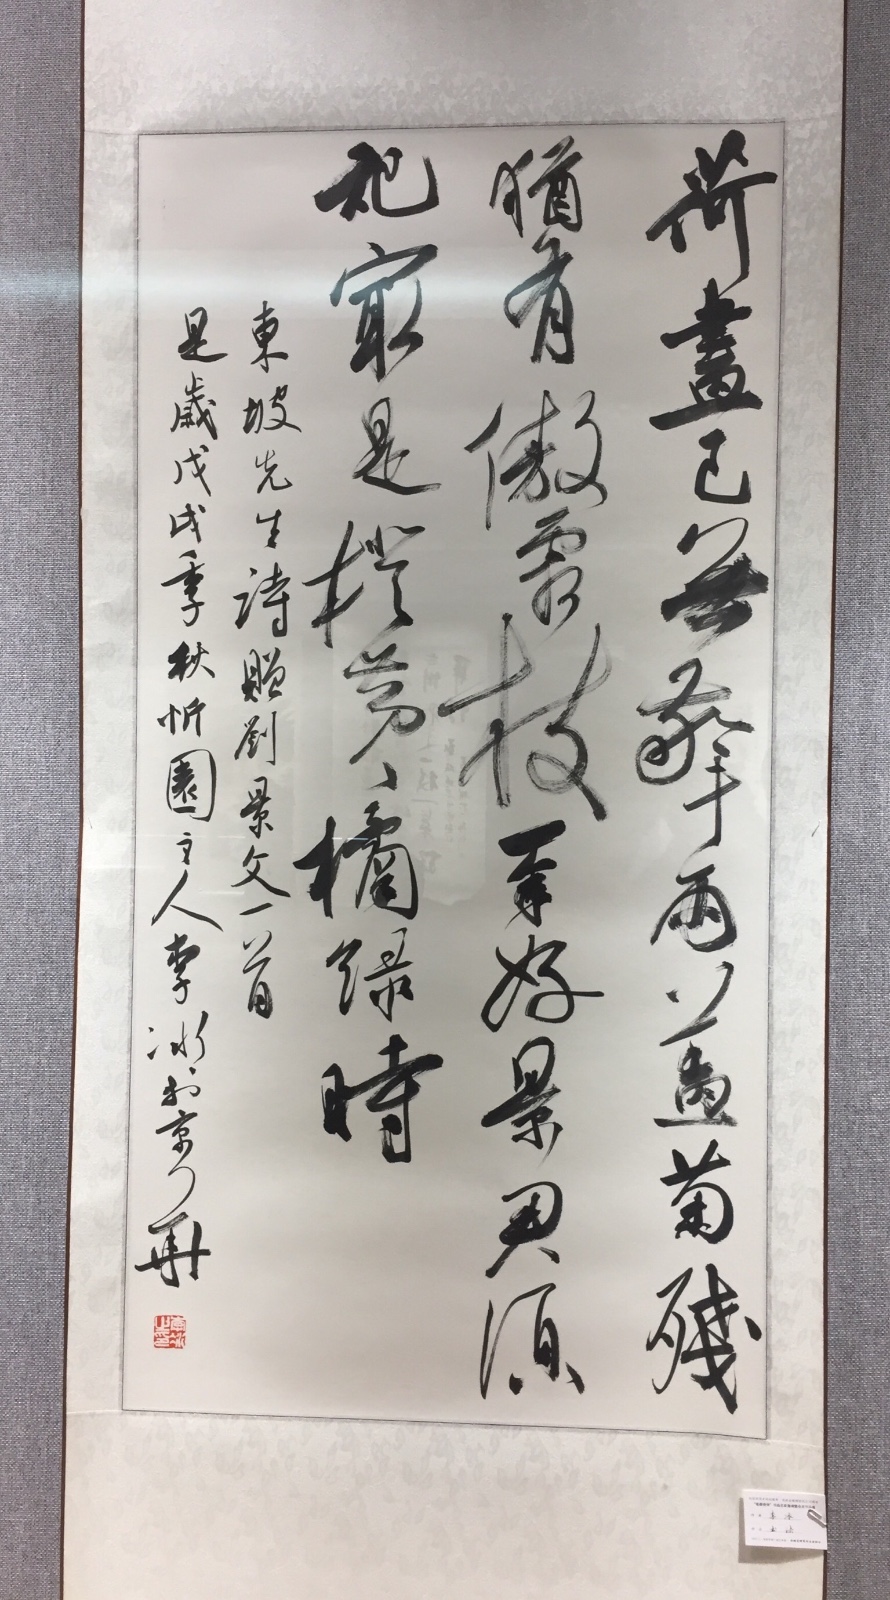 荷盡已無擎雨蓋菊殘
猶有傲霜枝一年好景君須
記最是橙黃橘綠時
東坡先生詩贈劉景文一首
是歲戊戌季秋忻園主人李冰於京華
李冰之印